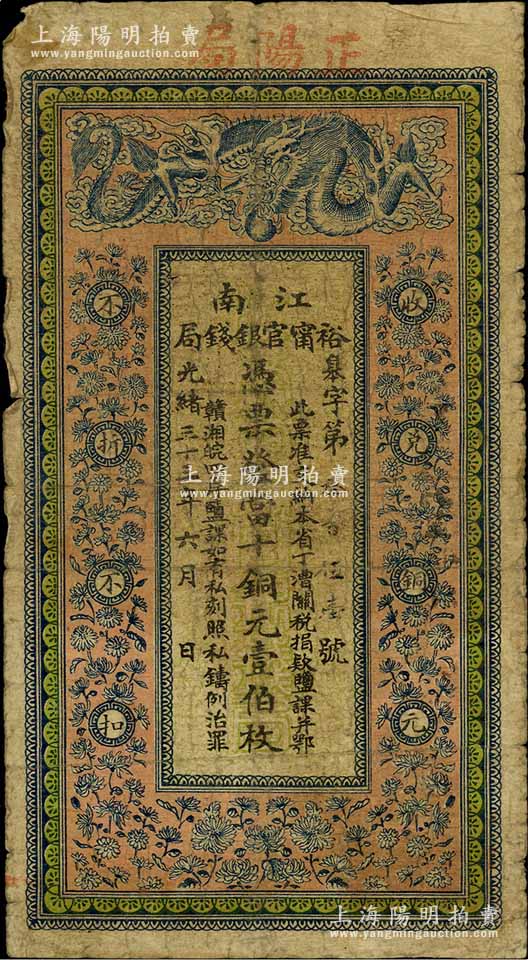 上海陽明拍賣
www.yangmingauction.com
正陽局
江南
裕甯官銀錢局
字第 百伍壹號
此票准 本省丁漕關稅捐款鹽課并鄂
憑票 當十銅元壹伯枚
贛湘皖 鹽課如有私刻照私鑄例治罪
光緒三十 年六月 日
收兌銅元
不折不扣
上海陽明拍賣
www.yangmingauction.com
上海陽明拍賣
www.yangmingauction.com